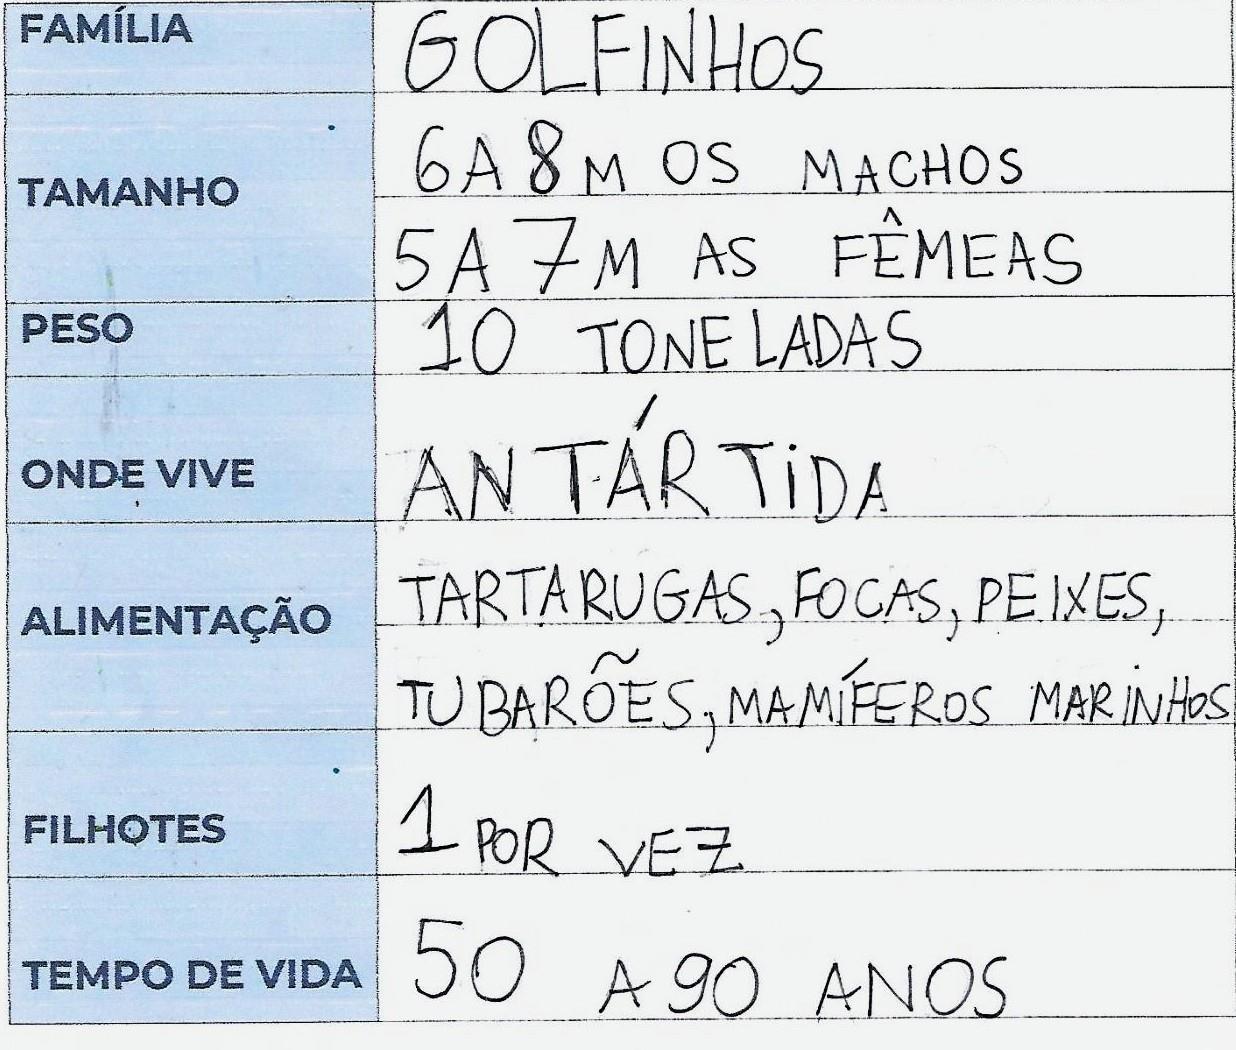 FAMÍLIA GOLFINHOS
TAMANHO 6 A 8 M OS MACHOS
5 A 7 M AS FÊMEAS
PESO 10 TONELADAS
ONDE VIVE ANTÁRTIDA
ALIMENTAÇÃO TARTARUGAS, FOCAS, PEIXES,
TUBARÕES, MAMÍFEROS MARINHOS
FILHOTES 1 POR VEZ
TEMPO DE VIDA 50 A 90 ANOS